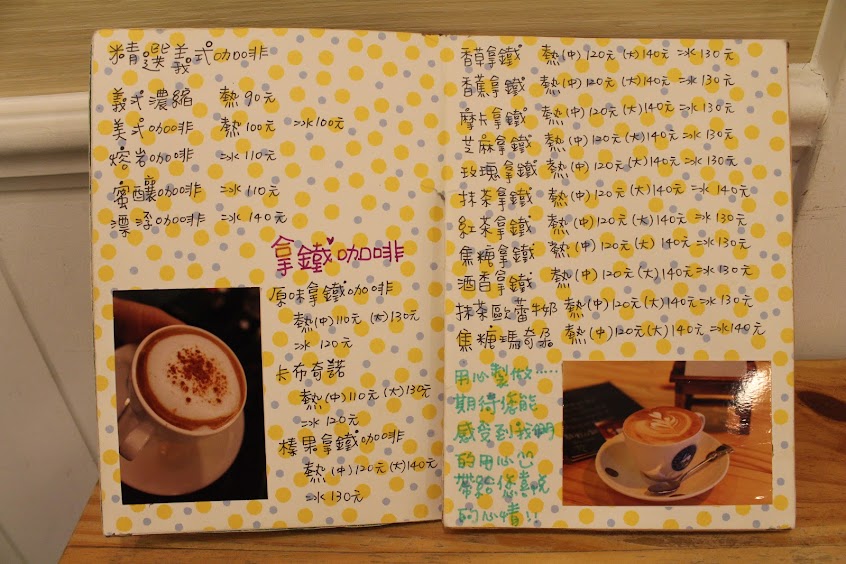 精選義式咖啡
義式濃縮 熱90元
美式咖啡 熱100元 冰100元
熔岩咖啡 冰110元
蜜釀咖啡 冰110元
漂浮咖啡 冰140元
拿鐵咖啡
原味拿鐵咖啡
熱(中)110元 (大)130元
冰120元
卡布奇諾
熱(中)110元(大)130元
冰120元
榛果拿鐵咖啡
熱(中)120元(大)140元
冰130元
香草拿鐵 熱(中)120元(大)140元 冰130元
香蕉拿鐵 熱(中)120元(大)140元 冰130元
摩卡拿鐵 熱(中)120元(大)140元 冰130元
芝麻拿鐵 熱(中)120元(大)140元 冰130元
玫瑰拿鐵 熱(中)120元(大)140元 冰130元
抹茶拿鐵 熱(中)120元(大)140元 冰140元
紅茶拿鐵 熱(中)120元(大)140元 冰130元
焦糖拿鐵 熱(中)120元(大)140元 冰130元
酒香拿鐵 熱(中)120元(大)140元 冰130元
抹茶歐蕾牛奶 熱(中)120元(大)140元 冰130元
焦糖瑪奇朵 熱(中)120元(大)140元 冰140元
用心製做……
期待您能
感受到我們
的用心心
帶給您喜悅
的心情!!